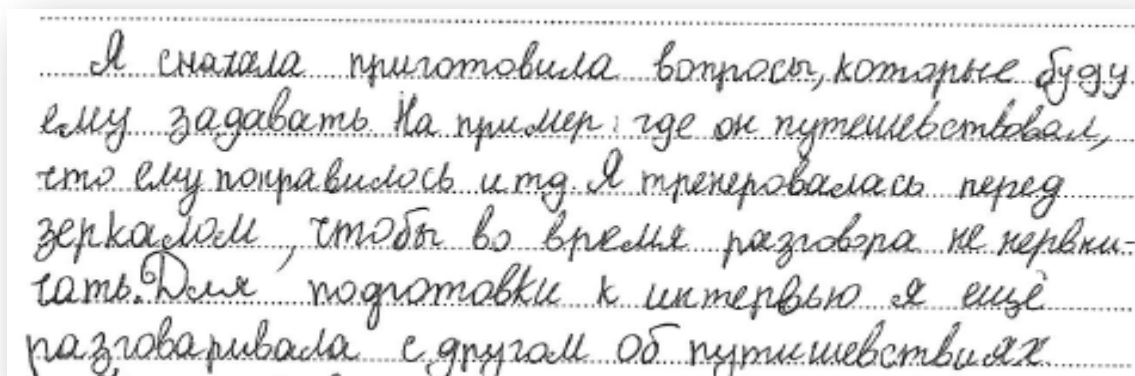 Я сначала приготовила вопросы, которые буду
ему задавать. На пример: где он путешевствовал,
что ему понравилось и тд. Я тренеровалась перед
зеркалом, чтобы во время разговора не нервни-
чать. Для подготовки к интервью я ещё
разговаривала с другом об путишевствиях